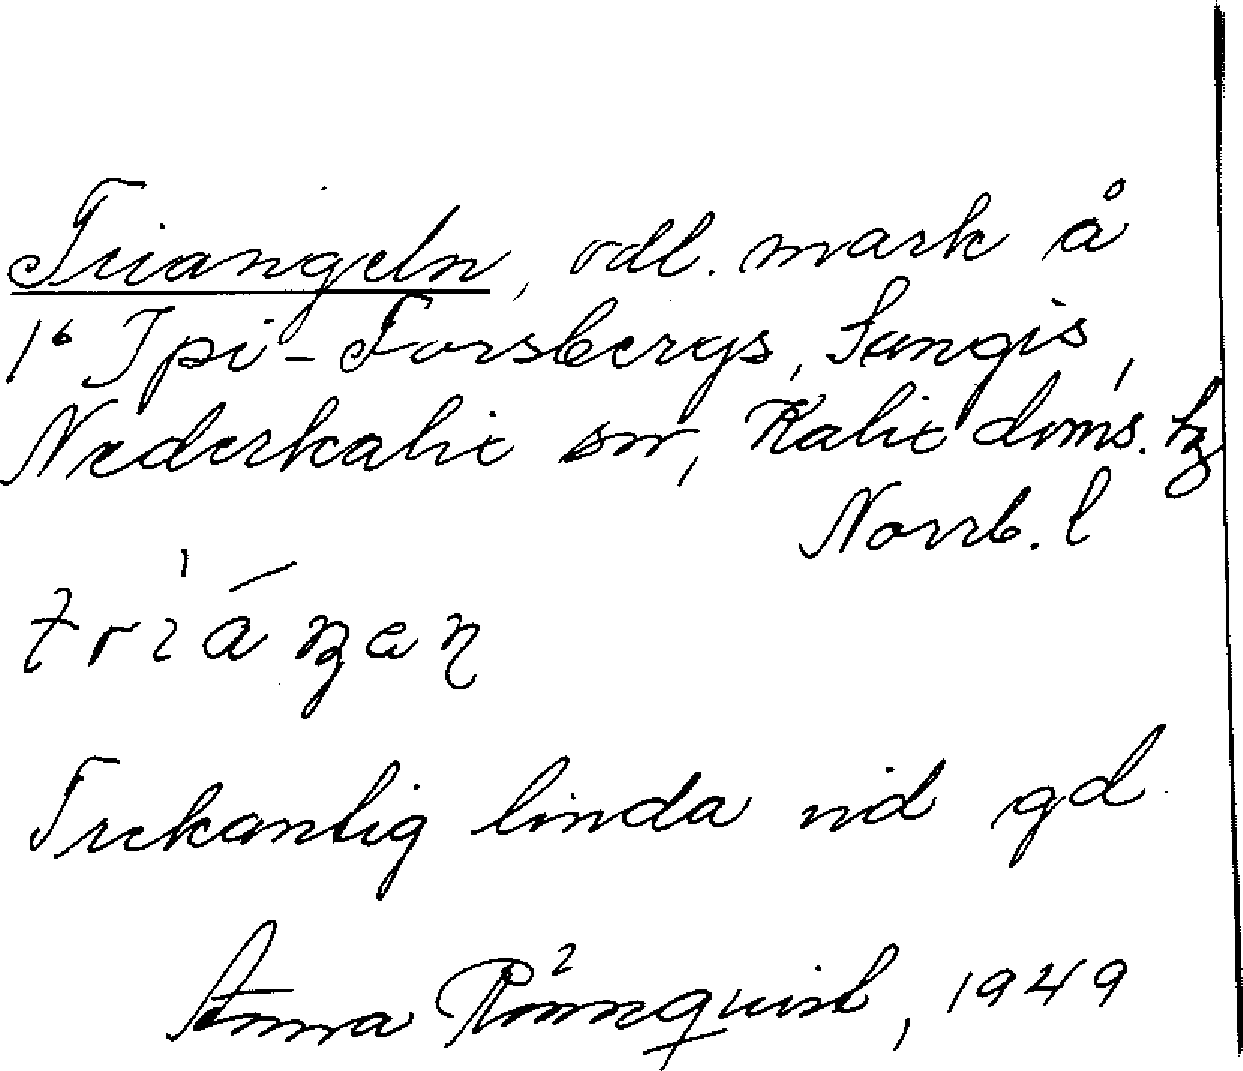 Triangeln, odl. mark å
1⁶ Ipi-Forsbergs, Sangis,
Nederkalix sn, Kalix doms. tg
Norrb. l
trìáŋen
Trekantig linda vid gd
Anna Rönnquist, 1949